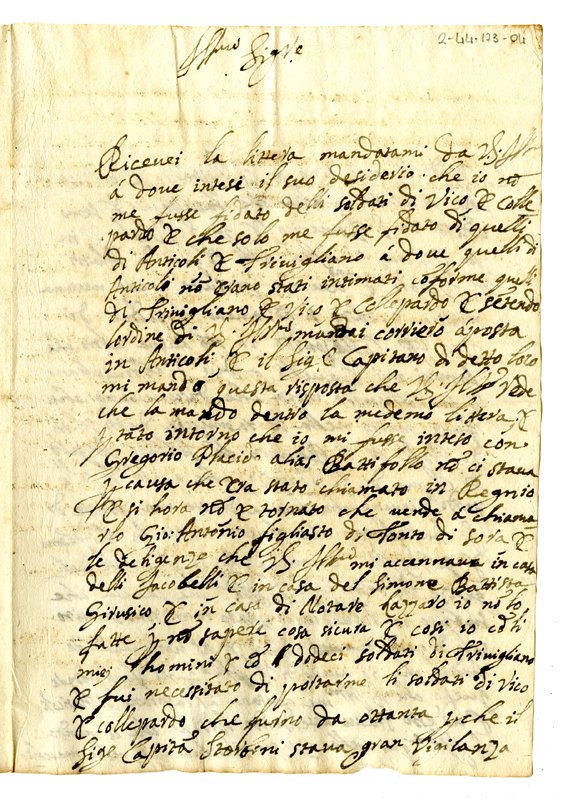 2-44-123-04
Ill.mo Sig.re
Riceuei la littera mandatami da VS. Ill.ma
á doue intesi il suo desiderio che io nõ
me fusse fidato delli soldati di Vico & Colle
pardo & che solo me fusse fidato di quelli
di Anticoli & Triuigliano á doue quelli di
Anticoli nõ erano stati intimati cõforme quelli
di Triuigliano & Vico & Collepardo & setendo
lordine di V. S. Ill.ma mandai corriero áposta
in Anticoli, & il Sig.r Capitano di detto loco
mi mandó questa risposta che VS. Ill.ma Vede
che la mando dentro la medema littera, &
ptãto intorno che io mi fusse inteso con
Gregorio Placido alias Battifollo nõ ci staua
p causa che era stato chiamato in Regnio
& si hora nõ é tornato che uende á chiama
rlo Gio: Antonio figliasto di Tonto di Sora &
le deligenze che VS. Ill.ma mi accennaua in casa
delli Jacobelli & in casa del Simone Battista
Girusico, & in casa di Notare Lazzaro io nõ lo
fatte p nõ sapere cosa sicura & cosi io cõ li
miei homini & cõ dodeci soldati di Triuigliano
& fui necessitato di portarme li soldati di Vico
& collepardo che furno da ottanta p che il
Sig.re Capitã staua gran Vigilanza